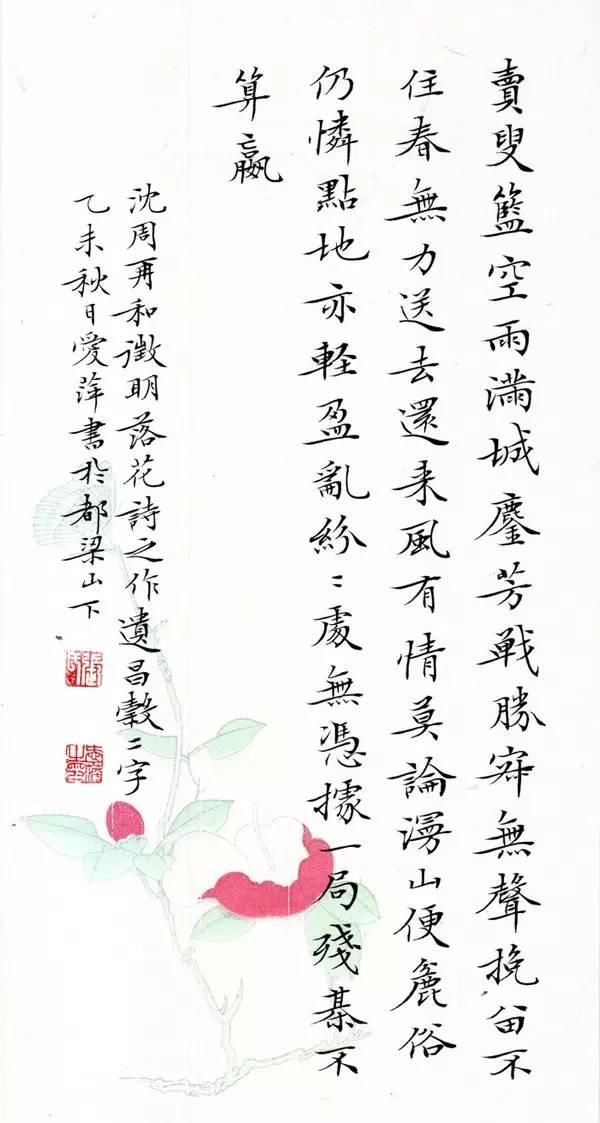 賣叟籃空雨滿城鏖芳戰勝寂無聲挽留不
住春無力送去還来風有情莫論漫山便麄俗
仍憐點地亦軽盈亂紛〻處無憑據一局殘棊不
算嬴
沈周再和徵明落花詩之作遺昌穀二字
乙未秋日愛萍書於都梁山下